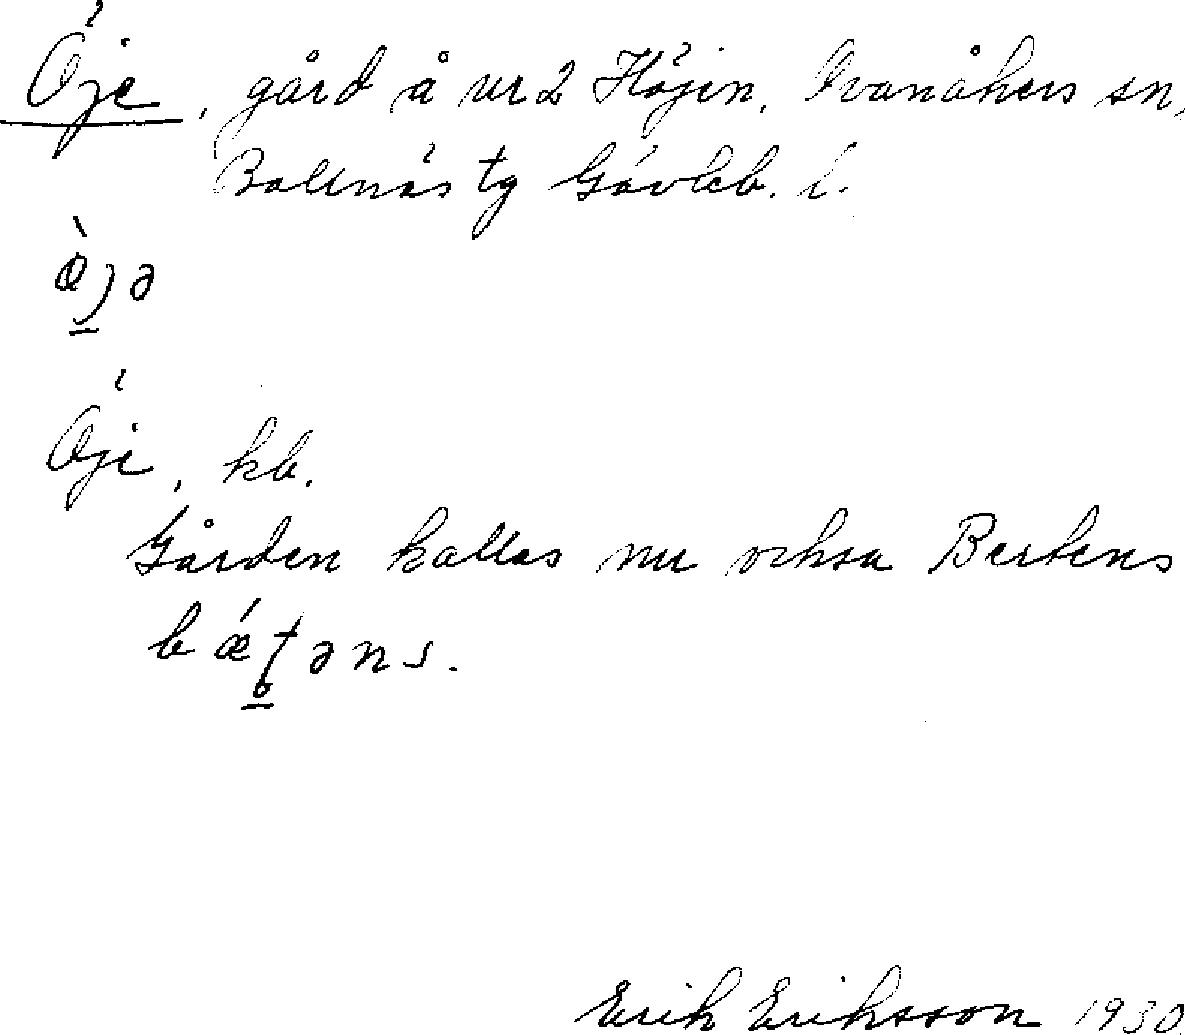 Öje, gård å nr 2 Höjen, Ovanåkers sn,
Bollnäs tg Gävleb. l.
ö̀jə
Öje, kb.
Gården kallas nu också Bertens
bǽtəns.
Erik Eriksson 1930